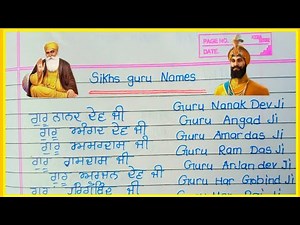 PAGE NO.
DATE:
Sikhs guru Names
ਗੁਰੂ ਨਾਨਕ ਦੇਵ ਜੀ Guru Nanak Dev Ji
ਗੁਰੂ ਅੰਗਦ ਦੇਵ ਜੀ Guru Angad Ji
ਗੁਰੂ ਅਮਰਦਾਸ ਜੀ Guru Amardas Ji
ਗੁਰੂ ਰਾਮਦਾਸ ਜੀ Guru Ram Das Ji
ਗੁਰੂ ਅਰਜਨ ਦੇਵ ਜੀ Guru Arjan dev Ji
ਗੁਰੂ ਹਰਗੋਬਿੰਦ ਜੀ Guru Har Gobind Ji
Guru Har Rai Ji